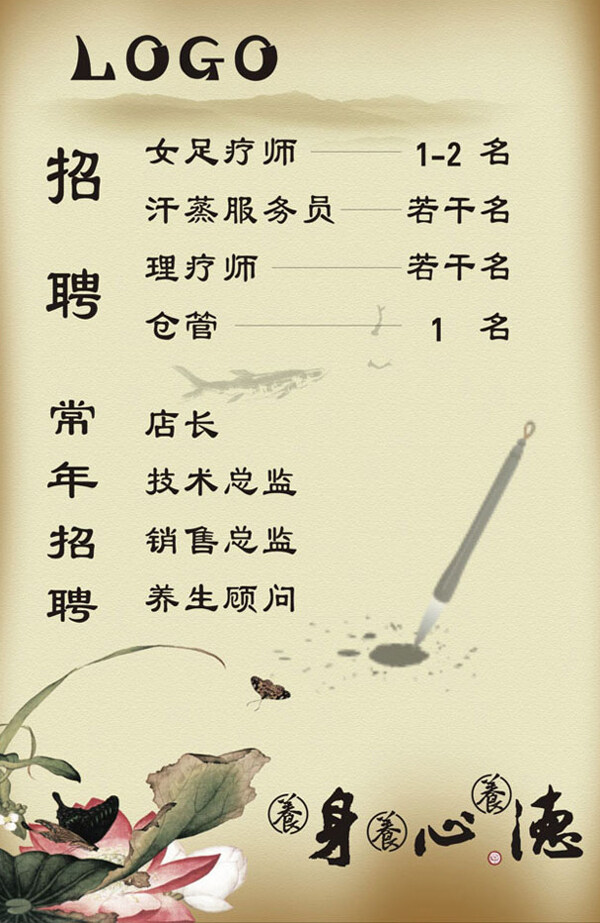 LOGO
招聘
女足疗师 1-2 名
汗蒸服务员 若干名
理疗师 若干名
仓管 1 名
常年招聘
店长
技术总监
销售总监
养生顾问
養身養心養德